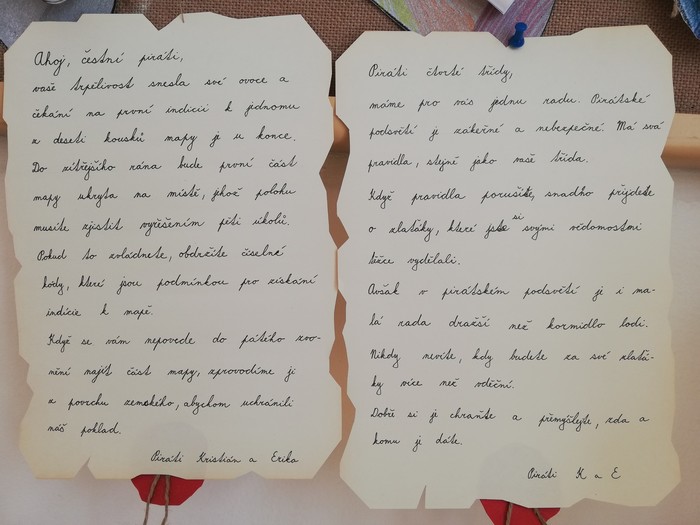 Ahoj, čestní piráti,
vaše trpělivost snesla své ovoce a
čekání na první indicii k jednomu
z deseti kousků mapy je u konce.
Do zítřejšího rána bude první část
mapy ukryta na místě, jehož polohu
musíte zjistit vyřešením pěti úkolů.
Pokud to zvládnete, obdržíte číselné
kódy, které jsou podmínkou pro získání
indície k mapě.
Když se vám nepovede do pátého zvo-
nění najít část mapy, zprovodíme ji
z povrchu zemského, abychom uchránili
náš poklad.
Piráti Kristián a Erika
Piráti čtvrté třídy,
máme pro vás jednu radu. Pirátské
podsvětí je zákeřné a nebezpečné. Má svá
pravidla, stejně jako vaše třída.
Když pravidla porušíte, snadno přijdete
o zlaťáky, které jste si svými vědomostmi
těžce vydělali.
Avšak v pirátském podsvětí je i ma-
lá rada dražší než kormidlo lodi.
Nikdy nevíte, kdy budete za své zlaťá-
ky více než vděční.
Dobře si je chraňte a přemýšlejte, zda a
komu je dáte.
Piráti K a E